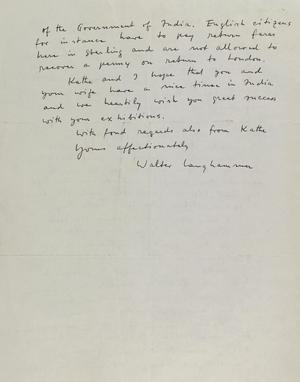 of the Government of India. English citizens
for instance have to pay return fares
here in Sterling and are not allowed to
recover a penny on return to London.
Kathe and I hope that you and
your wife have a nice time in India
and we heartily wish you great success
with your exhibitions.
With fond regards also from Kathe
Yours affectionately
Walter Langhammer